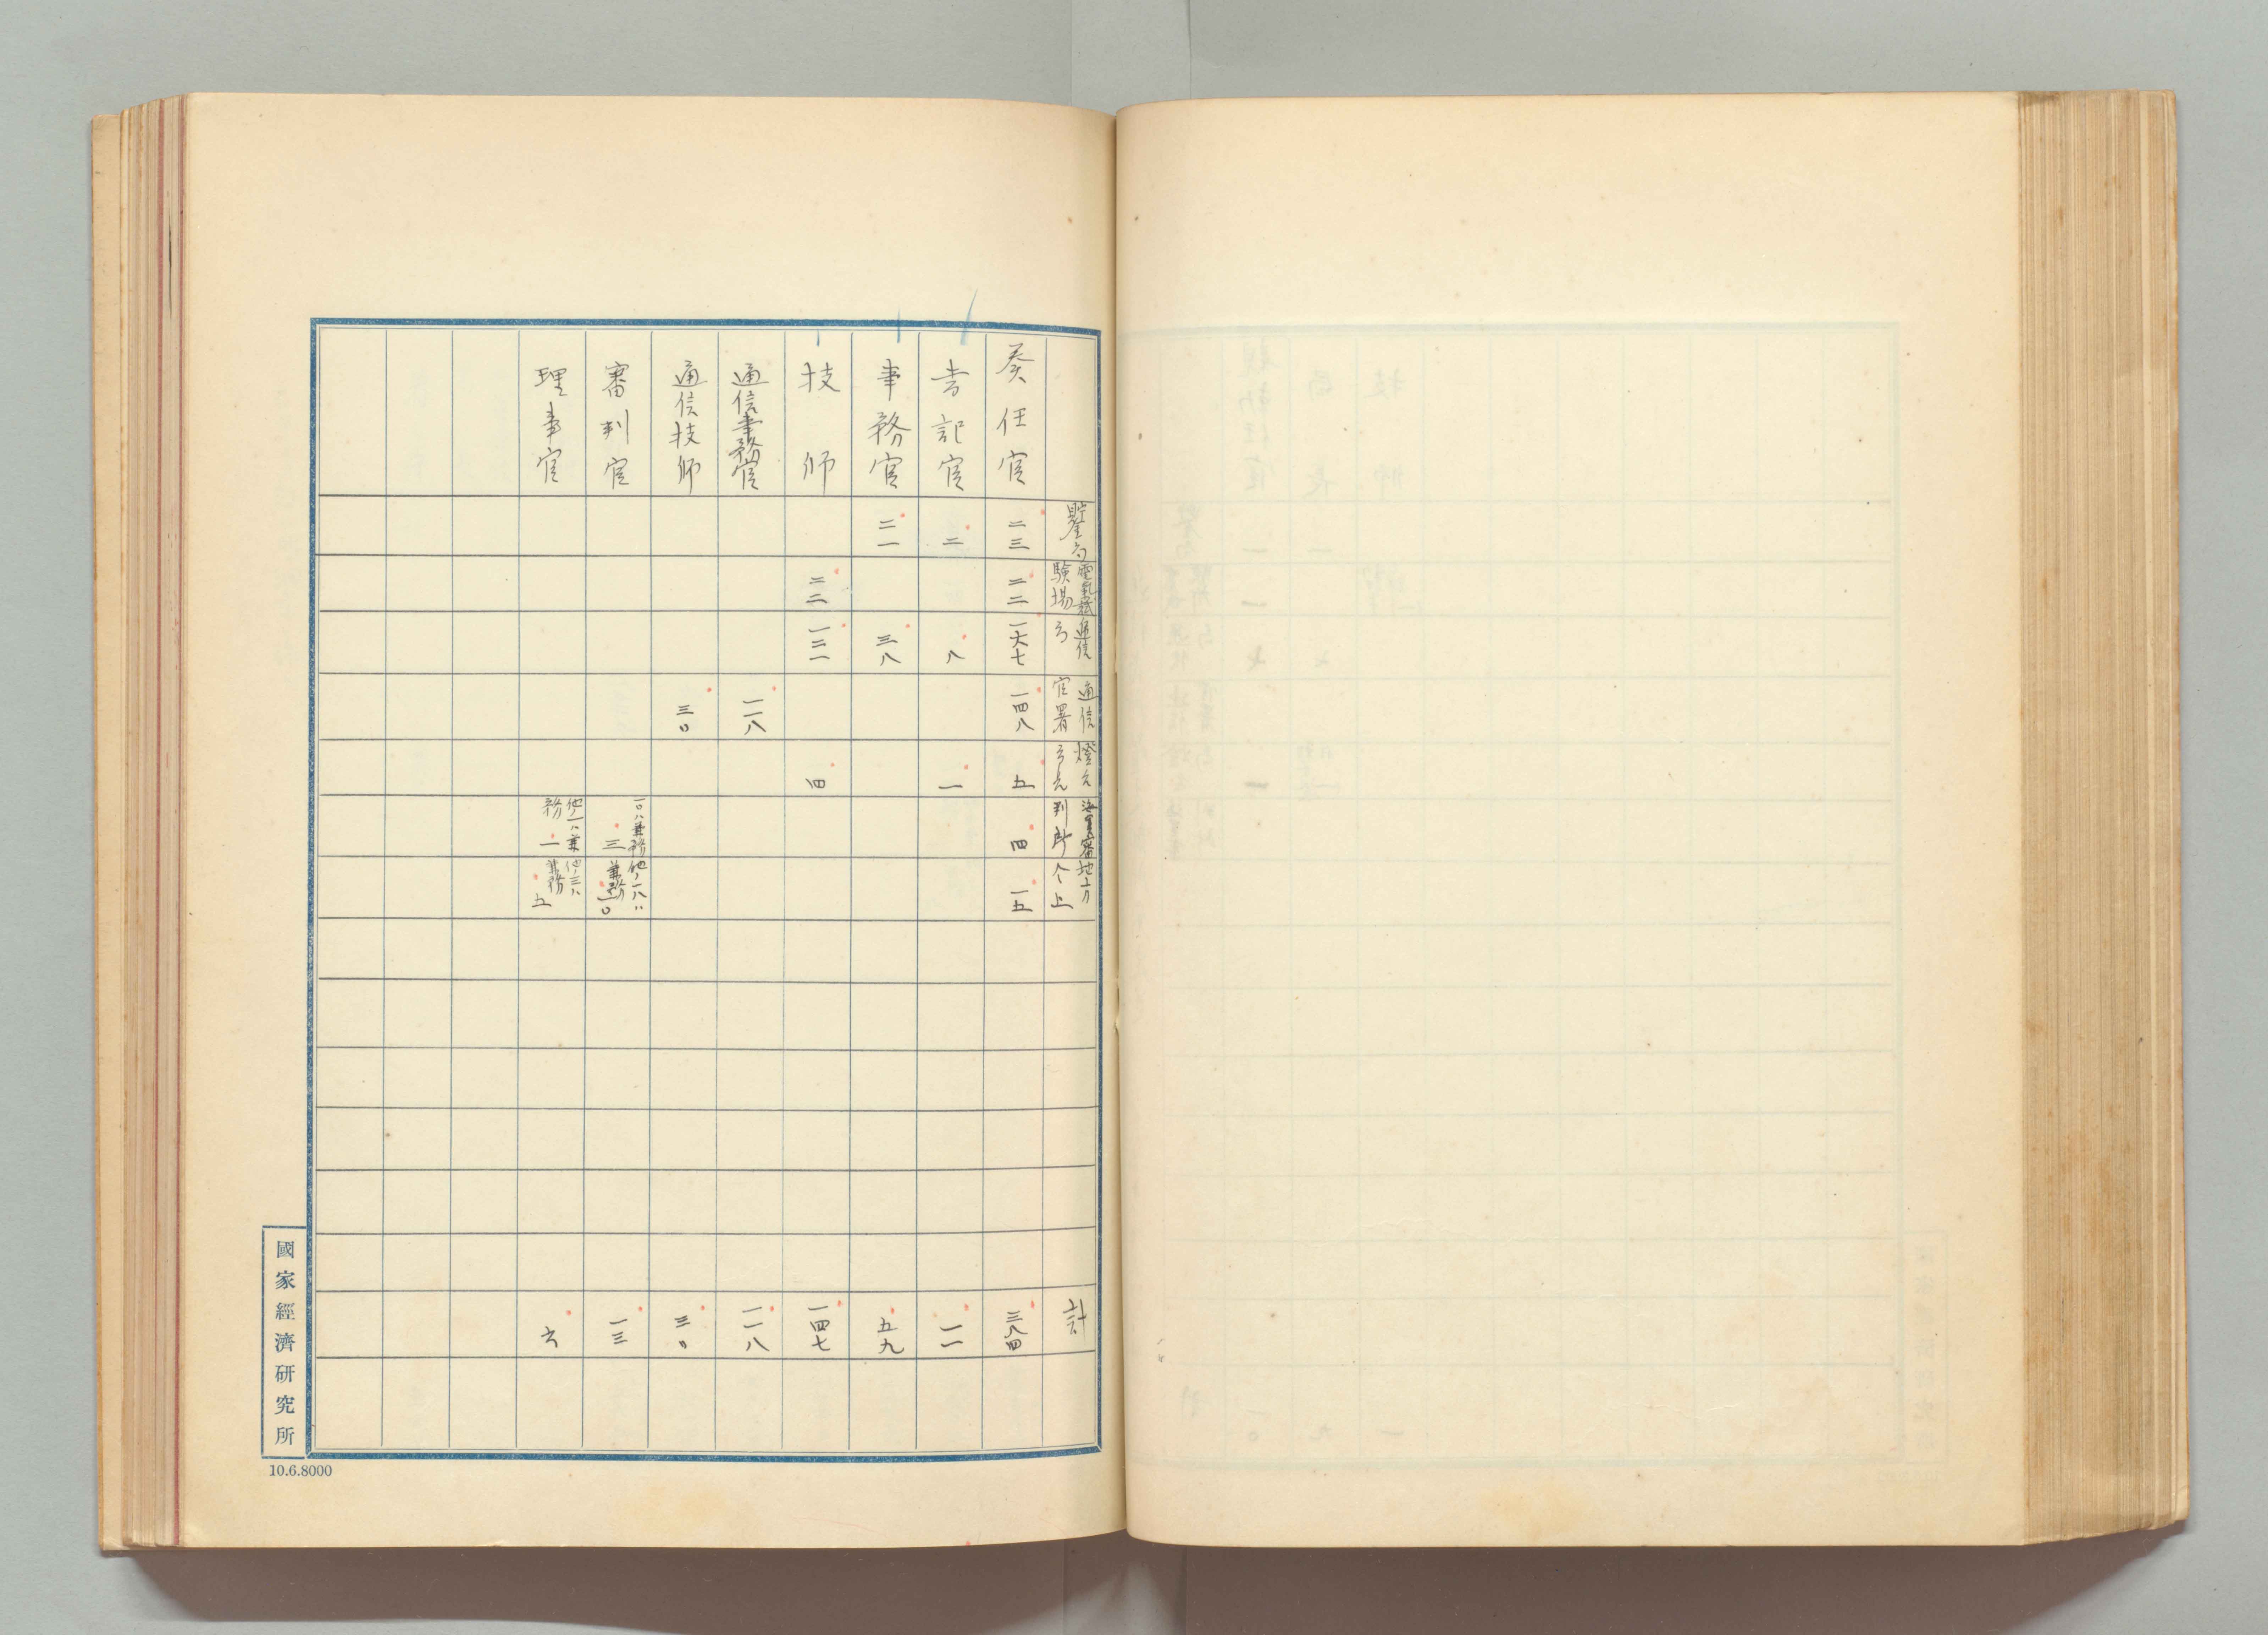 貯金局 電氣試験場 逓信局 通信官署 燈台 海員審判所 地方仝上 計
奏任官 二三 二二 一六七 一四八 五 四 一五 三八四
書記官 二 八 一 一一
事務官 二一 三八 五九
技師 二二 一二一 四 一四七
通信事務官 一一八 一一八
通信技師 三〇 三〇
審判官 一〇ハ兼務 三 他ノ一八ハ兼務 一〇 一三
理事官 他ノ一ハ兼務 一 他ノ三ハ兼務 五 六
國家經濟研究所
10.6.8000